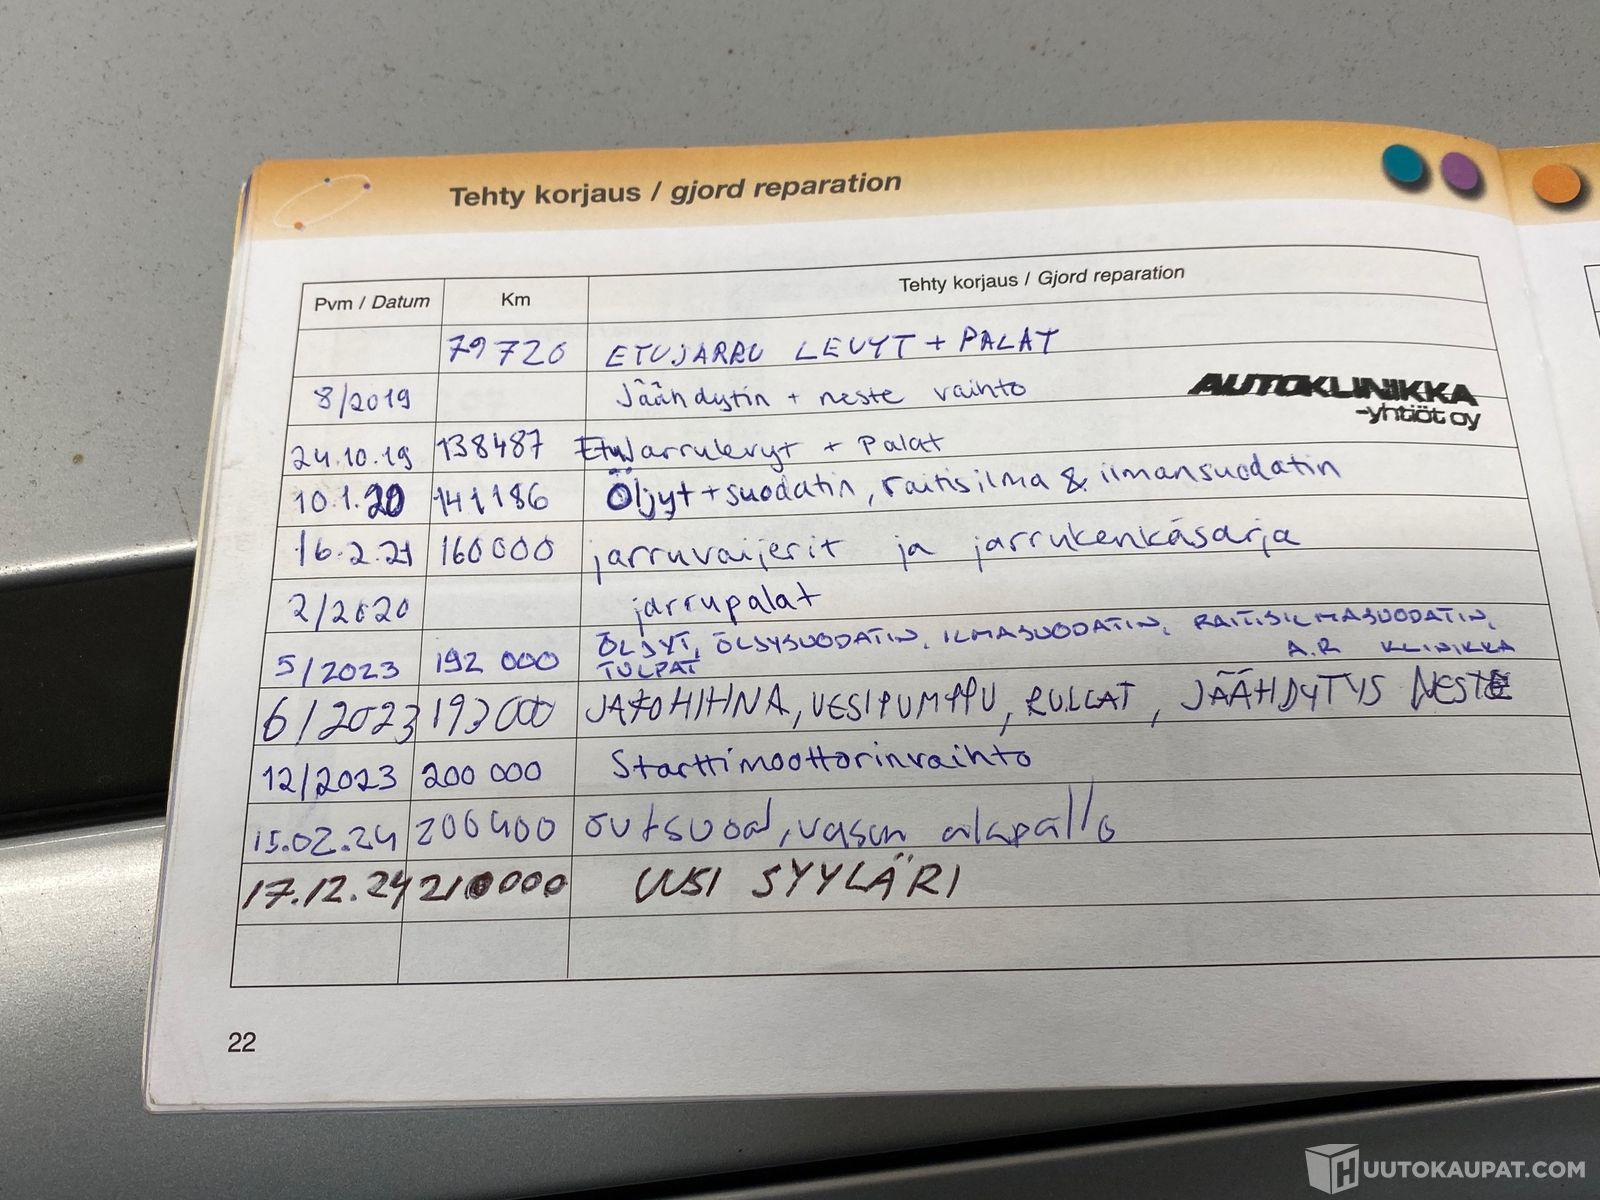 Tehty korjaus / gjord reparation
Pvm / Datum Km Tehty korjaus / Gjord reparation
79720 ETUJARRU LEVYT + PALAT
8/2019 Jäähdytin + neste vaihto AUTOKLINIKKA
-yhtiöt oy
24.10.19 138487 Etujarrulevyt + Palat
10.1.20 141186 Öljyt + suodatin, raitisilma & ilmansuodatin
16.2.21 160000 jarruvaijerit ja jarrukenkäsarja
2/2020 jarrupalat
5/2023 192 000 ÖLJYT, ÖLJYSUODATIN, ILMASUODATIN, RAITISILMASUODATIN,
TULPAT A.R KLINIKKA
6/2023 193000 JAKOHIHNA, VESIPUMPPU, RULLAT, JÄÄHDYTYS NESTE
12/2023 200 000 Starttimoottorinvaihto
15.02.24 200400 alapallo
17.12.24 210000 UUSI SYYLÄRI
22
HUUTOKAUPAT.COM